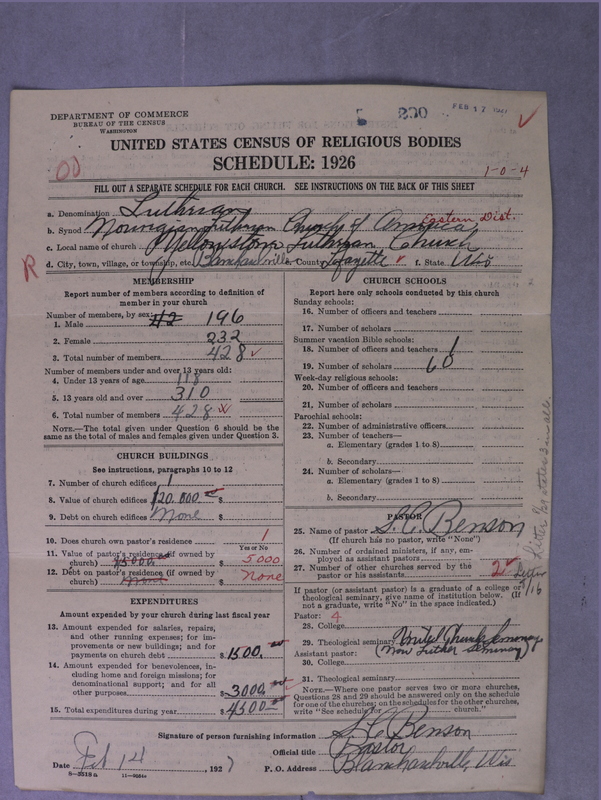 DEPARTMENT OF COMMERCE
BUREAU OF THE CENSUS
WASHINGTON
230
FEB 17 1927
UNITED STATES CENSUS OF RELIGIOUS BODIES
SCHEDULE: 1926
1-0-4
FILL OUT A SEPARATE SCHEDULE FOR EACH CHURCH. SEE INSTRUCTIONS ON THE BACK OF THIS SHEET
a. Denomination Luthrian
Eastern Dist.
b. Synod Norwegian Lutheran Church of America
c. Local name of church Yellowstone Lutheran Church
R
d. City, town, village, or township, etc. Blanchardville e. County Lafayette f. State Wis
MEMBERSHIP
Report number of members according to definition of
member in your church
Number of members, by sex:
1. Male 112 196
2. Female 232
3. Total number of members 428
Number of members under and over 13 years old:
4. Under 13 years of age 118
5. 13 years old and over 310
6. Total number of members 428
NOTE.—The total given under Question 6 should be the
same as the total of males and females given under Question 3.
CHURCH BUILDINGS
See instructions, paragraphs 10 to 12
7. Number of church edifices 1
8. Value of church edifices $20.000 $
9. Debt on church edifices None $
10. Does church own pastor's residence 1
Yes or No
11. Value of pastor's residence (if owned by
church) $5000 $ 5000
12. Debt on pastor's residence (if owned by
church) None $ None
EXPENDITURES
Amount expended by your church during last fiscal year
13. Amount expended for salaries, repairs,
and other running expenses; for im-
provements or new buildings; and for
payments on church debt $ 1500.
14. Amount expended for benevolences, in-
cluding home and foreign missions; for
denominational support; and for all
other purposes $ 3000.
15. Total expenditures during year $ 4500.
CHURCH SCHOOLS
Report here only schools conducted by this church
Sunday schools:
16. Number of officers and teachers
17. Number of scholars
Summer vacation Bible schools:
18. Number of officers and teachers 1
19. Number of scholars 60
Week-day religious schools:
20. Number of officers and teachers
21. Number of scholars
Parochial schools:
22. Number of administrative officers
23. Number of teachers—
a. Elementary (grades 1 to 8)
b. Secondary
24. Number of scholars—
a. Elementary (grades 1 to 8)
b. Secondary
PASTOR
25. Name of pastor S. C. Benson
(If church has no pastor, write "None")
26. Number of ordained ministers, if any, em-
ployed as assistant pastors
27. Number of other churches served by the
pastor or his assistants 2 Letter
If pastor (or assistant pastor) is a graduate of a college or
theological seminary, give name of institution below. (If
not a graduate, write "No" in the space indicated.)
Pastor: 4
28. College
29. Theological seminary United Church Seminary
(Now Luther Seminary)
Assistant pastor:
30. College
31. Theological seminary
NOTE.—Where one pastor serves two or more churches,
Questions 28 and 29 should be answered only on the schedule
for one of the churches; on the schedules for the other churches,
write "See schedule for church."
Signature of person furnishing information S. C. Benson
Official title Pastor
Date Feb 14, 1927 P. O. Address Blanchardville, Wis.
8-3518a